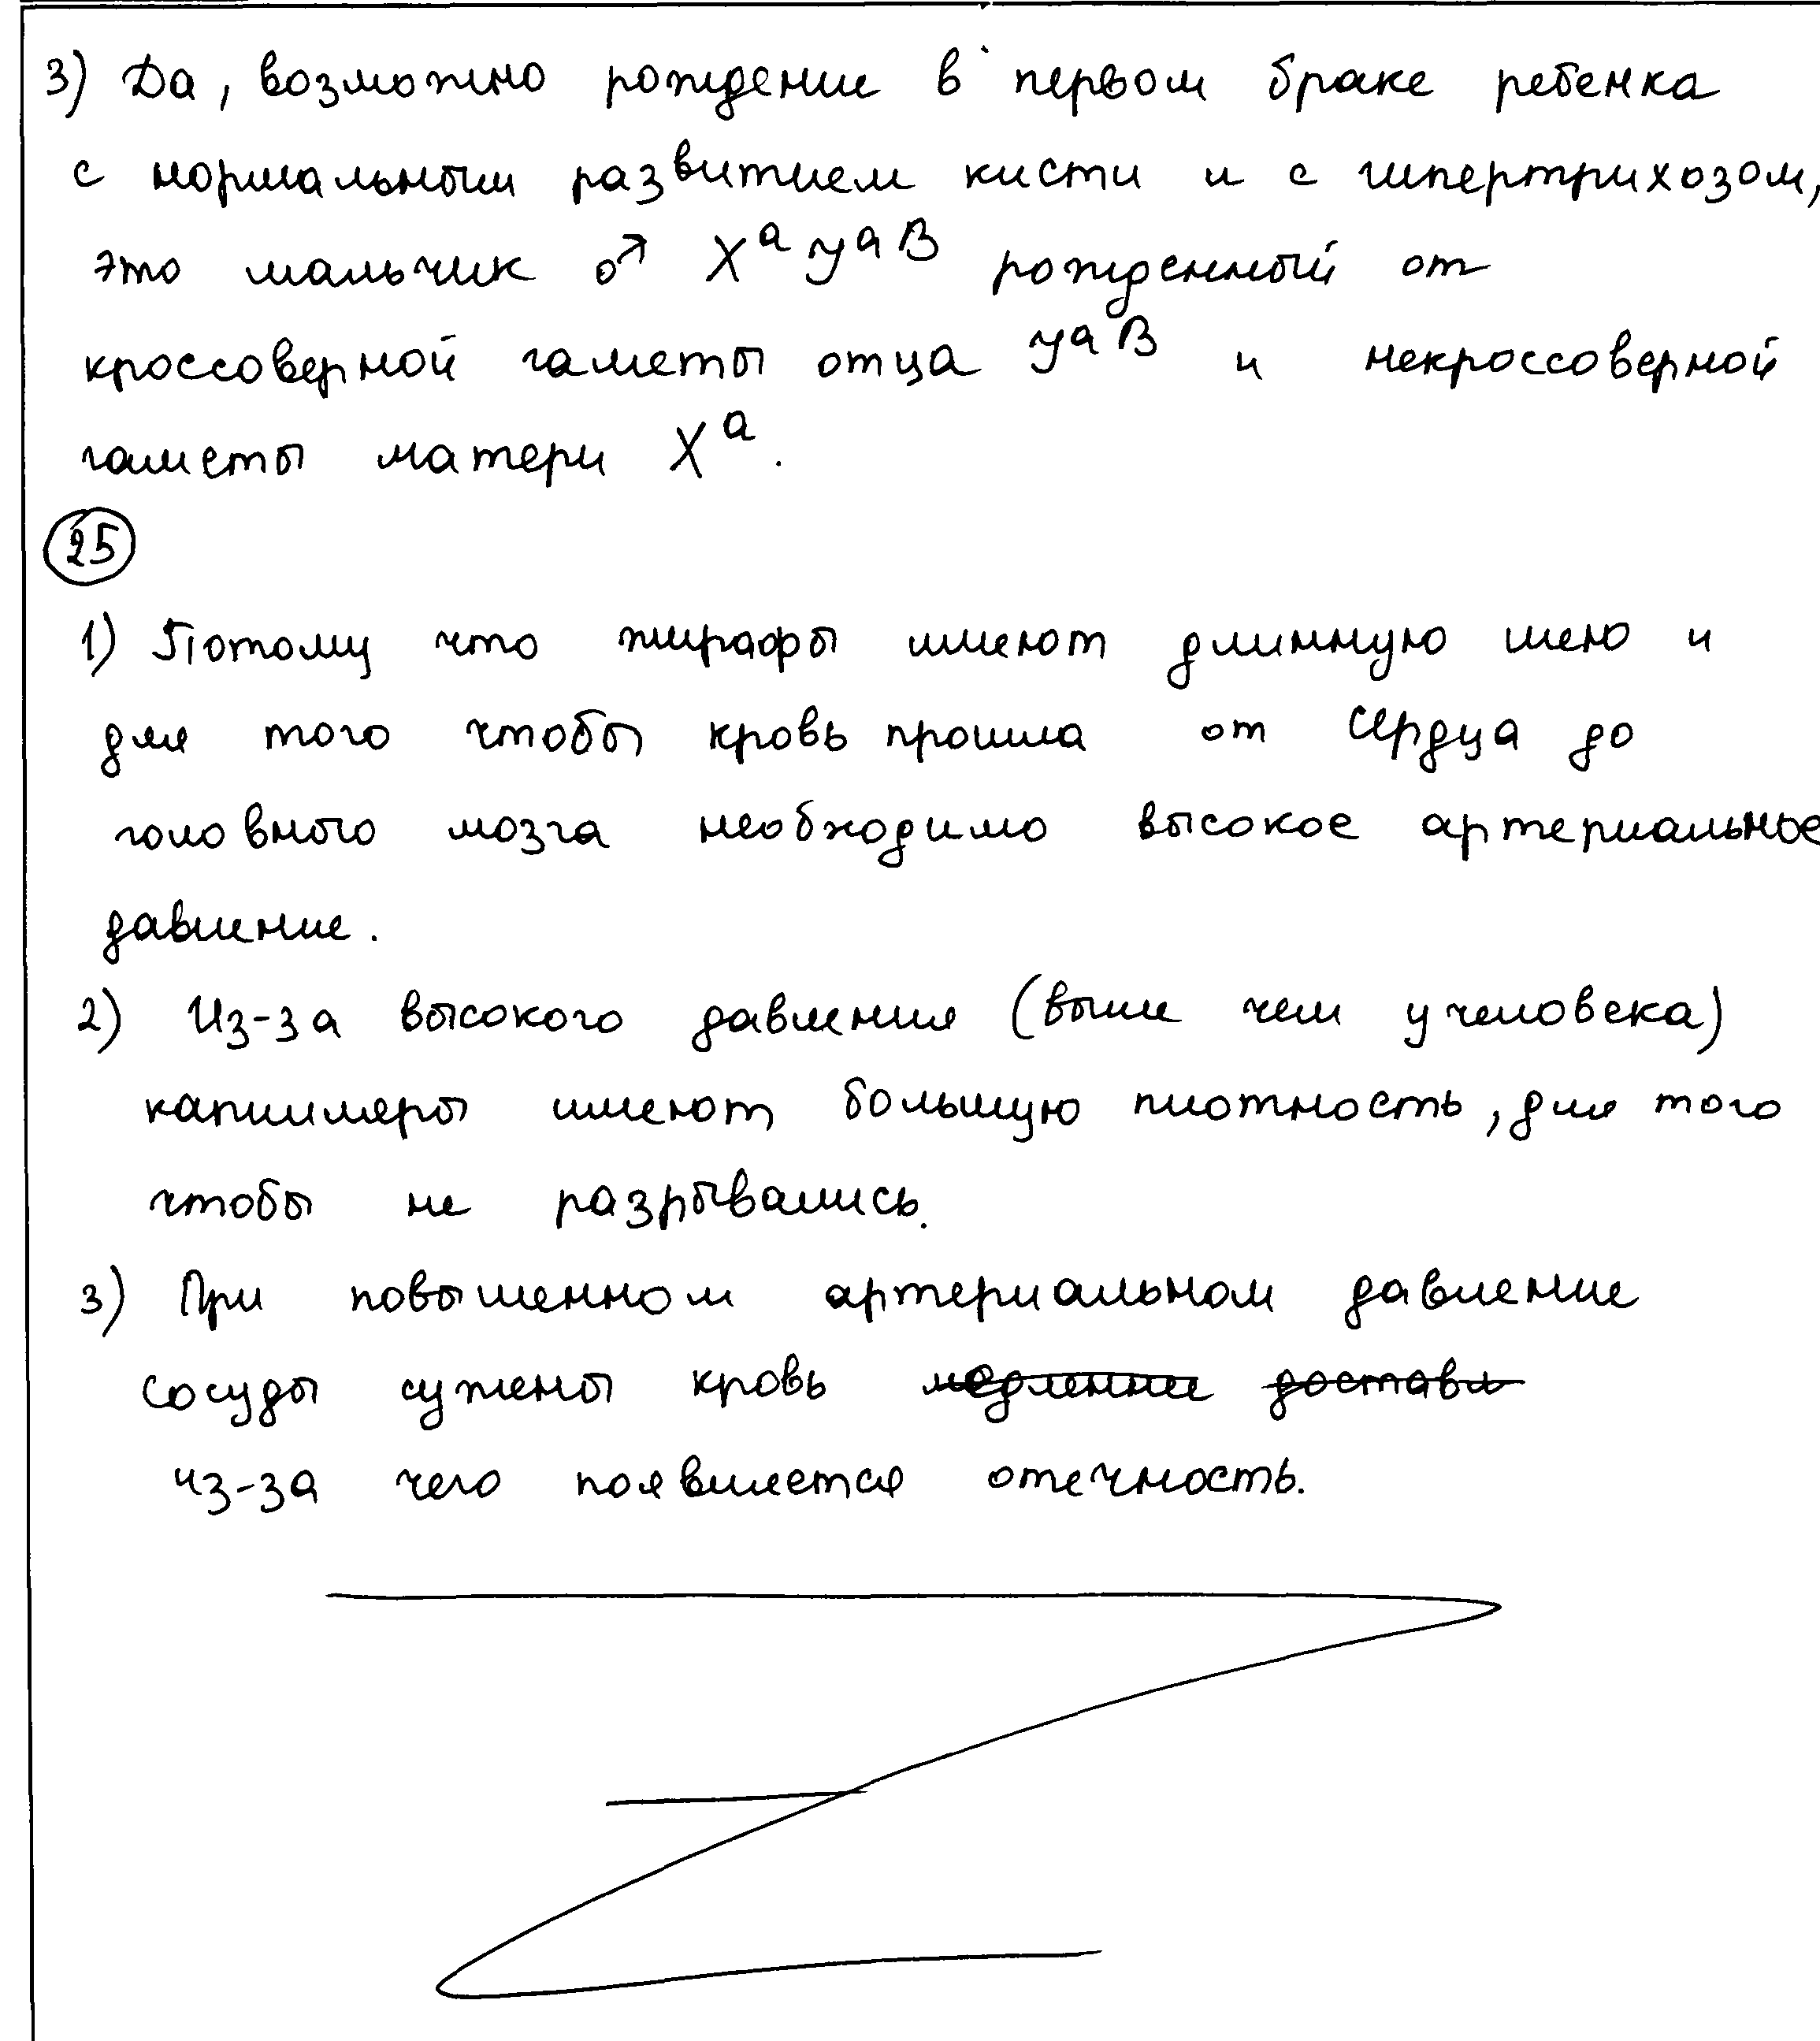 3) Да, возможно рождение в первом браке ребенка
с нормальным развитием кисти и с гипертрихозом,
это мальчик ♂ XᵃYᵃᴮ рожденный от
кроссоверной гаметы отца Yᵃᴮ и некроссоверной
гаметы матери Xᵃ.
25
1) Потому что жирафы имеют длинную шею и
для того чтобы кровь прошла от сердца до
головного мозга необходимо высокое артериальное
давление.
2) Из-за высокого давления (выше чем у человека)
капилляры имеют большую плотность, для того
чтобы не разрывались.
3) При повышенном артериальном давление
сосуды сужены кровь медленнее доставл
из-за чего появляется отечность.